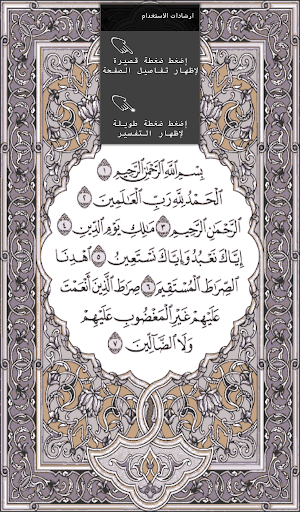 ارشادات الاستخدام
إضغط ضغطة قصيرة
لإظهار تفاصيل الصفحة
إضغط ضغطة طويلة
لإظهار التفسير
بِسْمِ اللَّهِ الرَّحْمَٰنِ الرَّحِيمِ ١
الْحَمْدُ لِلَّهِ رَبِّ الْعَالَمِينَ ٢
الرَّحْمَٰنِ الرَّحِيمِ ٣ مَالِكِ يَوْمِ الدِّينِ ٤
إِيَّاكَ نَعْبُدُ وَإِيَّاكَ نَسْتَعِينُ ٥ اهْدِنَا
الصِّرَاطَ الْمُسْتَقِيمَ ٦ صِرَاطَ الَّذِينَ أَنْعَمْتَ
عَلَيْهِمْ غَيْرِ الْمَغْضُوبِ عَلَيْهِمْ
وَلَا الضَّالِّينَ ٧